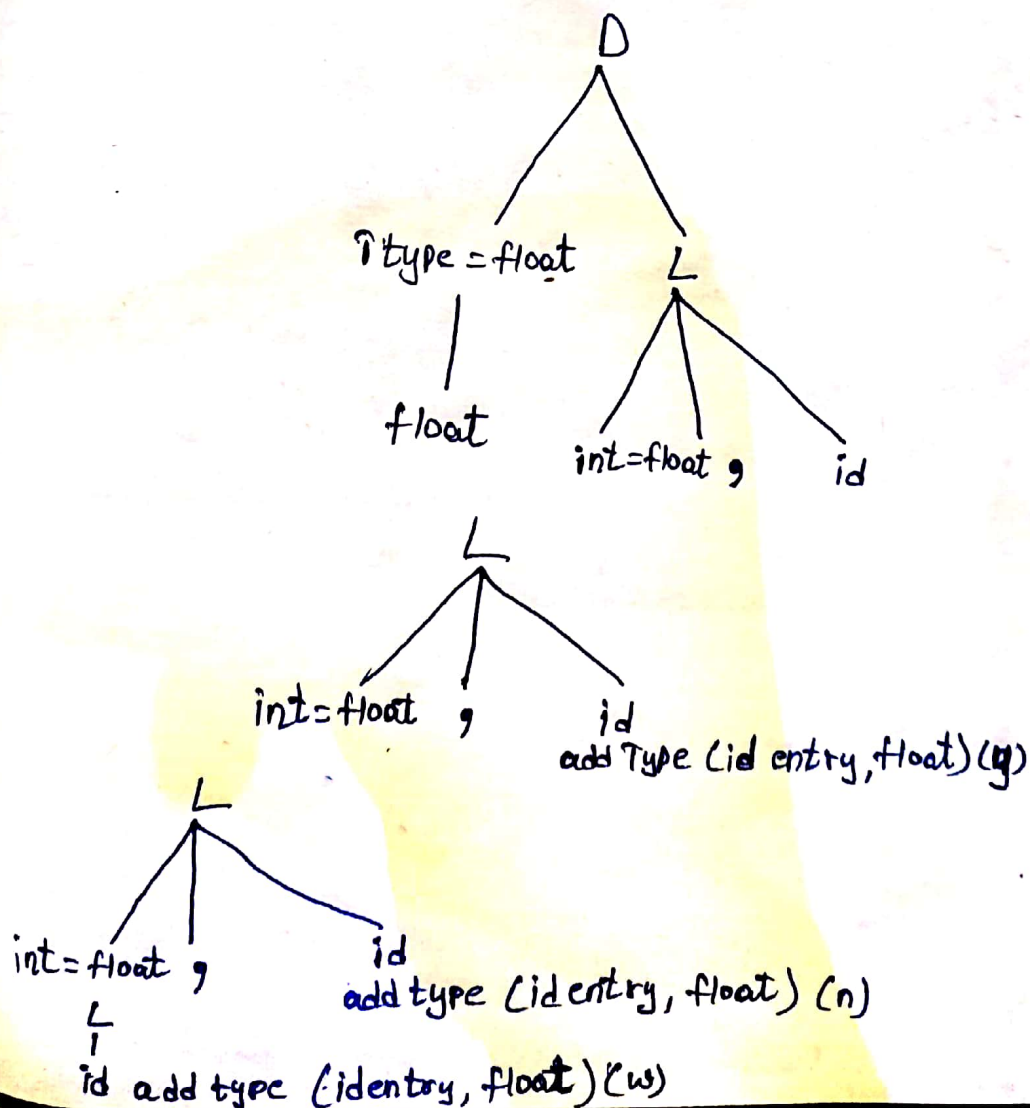 D
Ttype = float L
float
int=float , id
L
int=float , id
add Type (id entry, float) (y)
L
int=float , id
add type (identry, float) (n)
L
id add type (identry, float) (w)